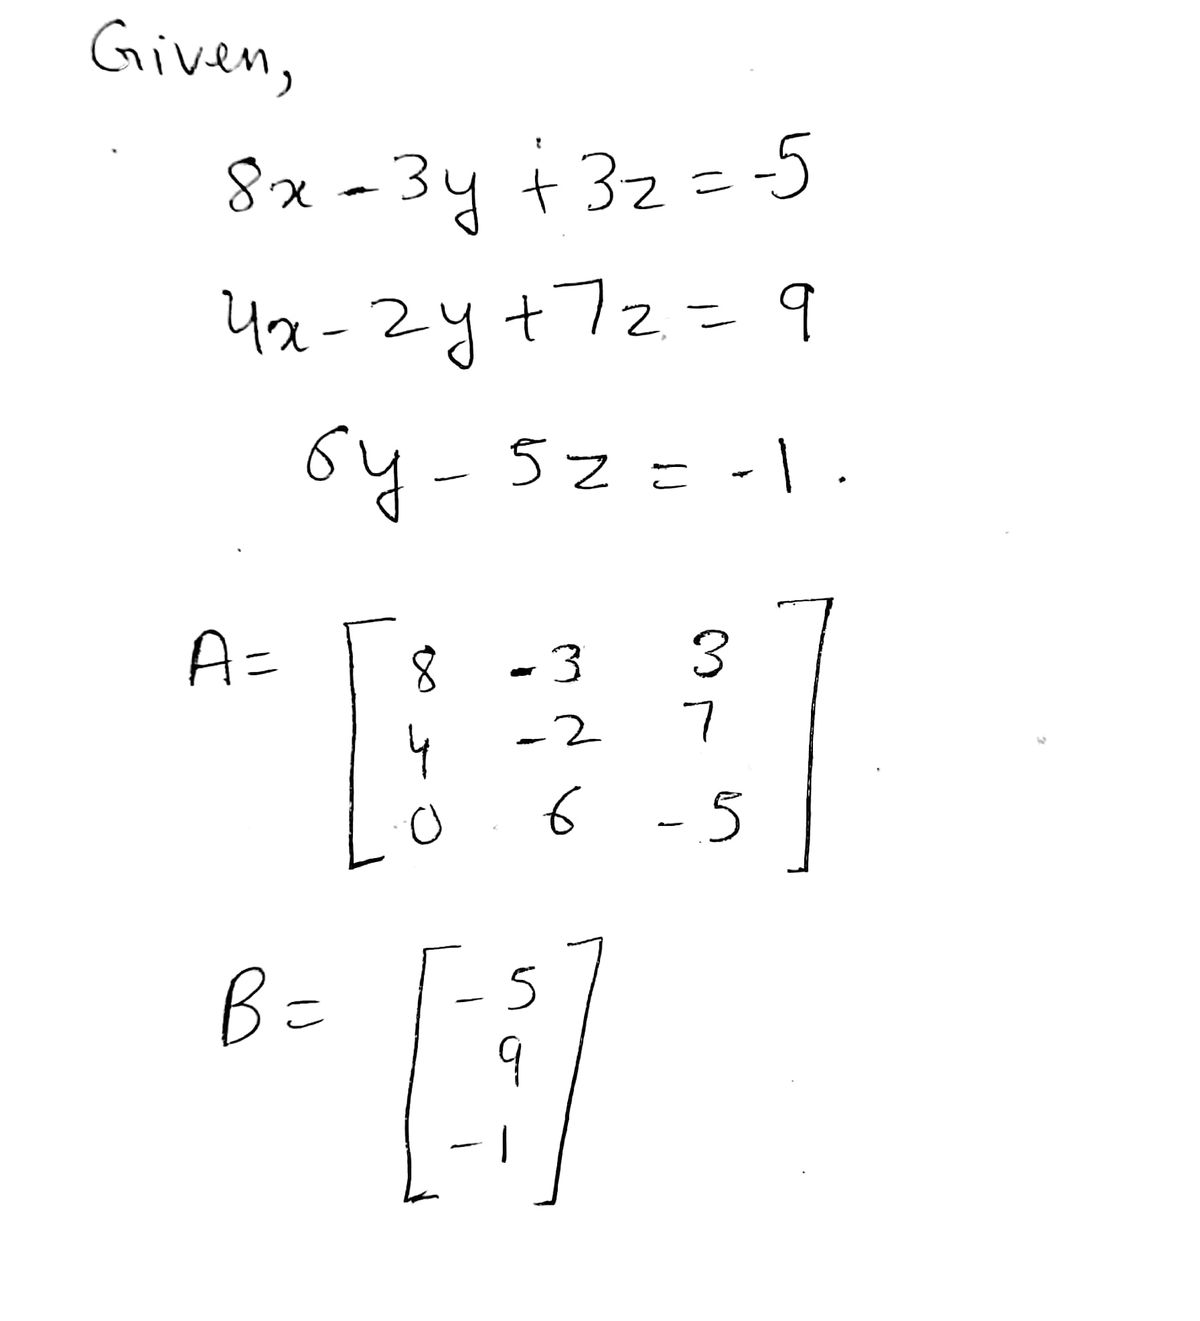 Given,
8x - 3y + 3z = -5
4x - 2y + 7z = 9
6y - 5z = -1.
A = [ 8 -3 3
4 -2 7
0 6 -5 ]
B = [ -5
9
-1 ]